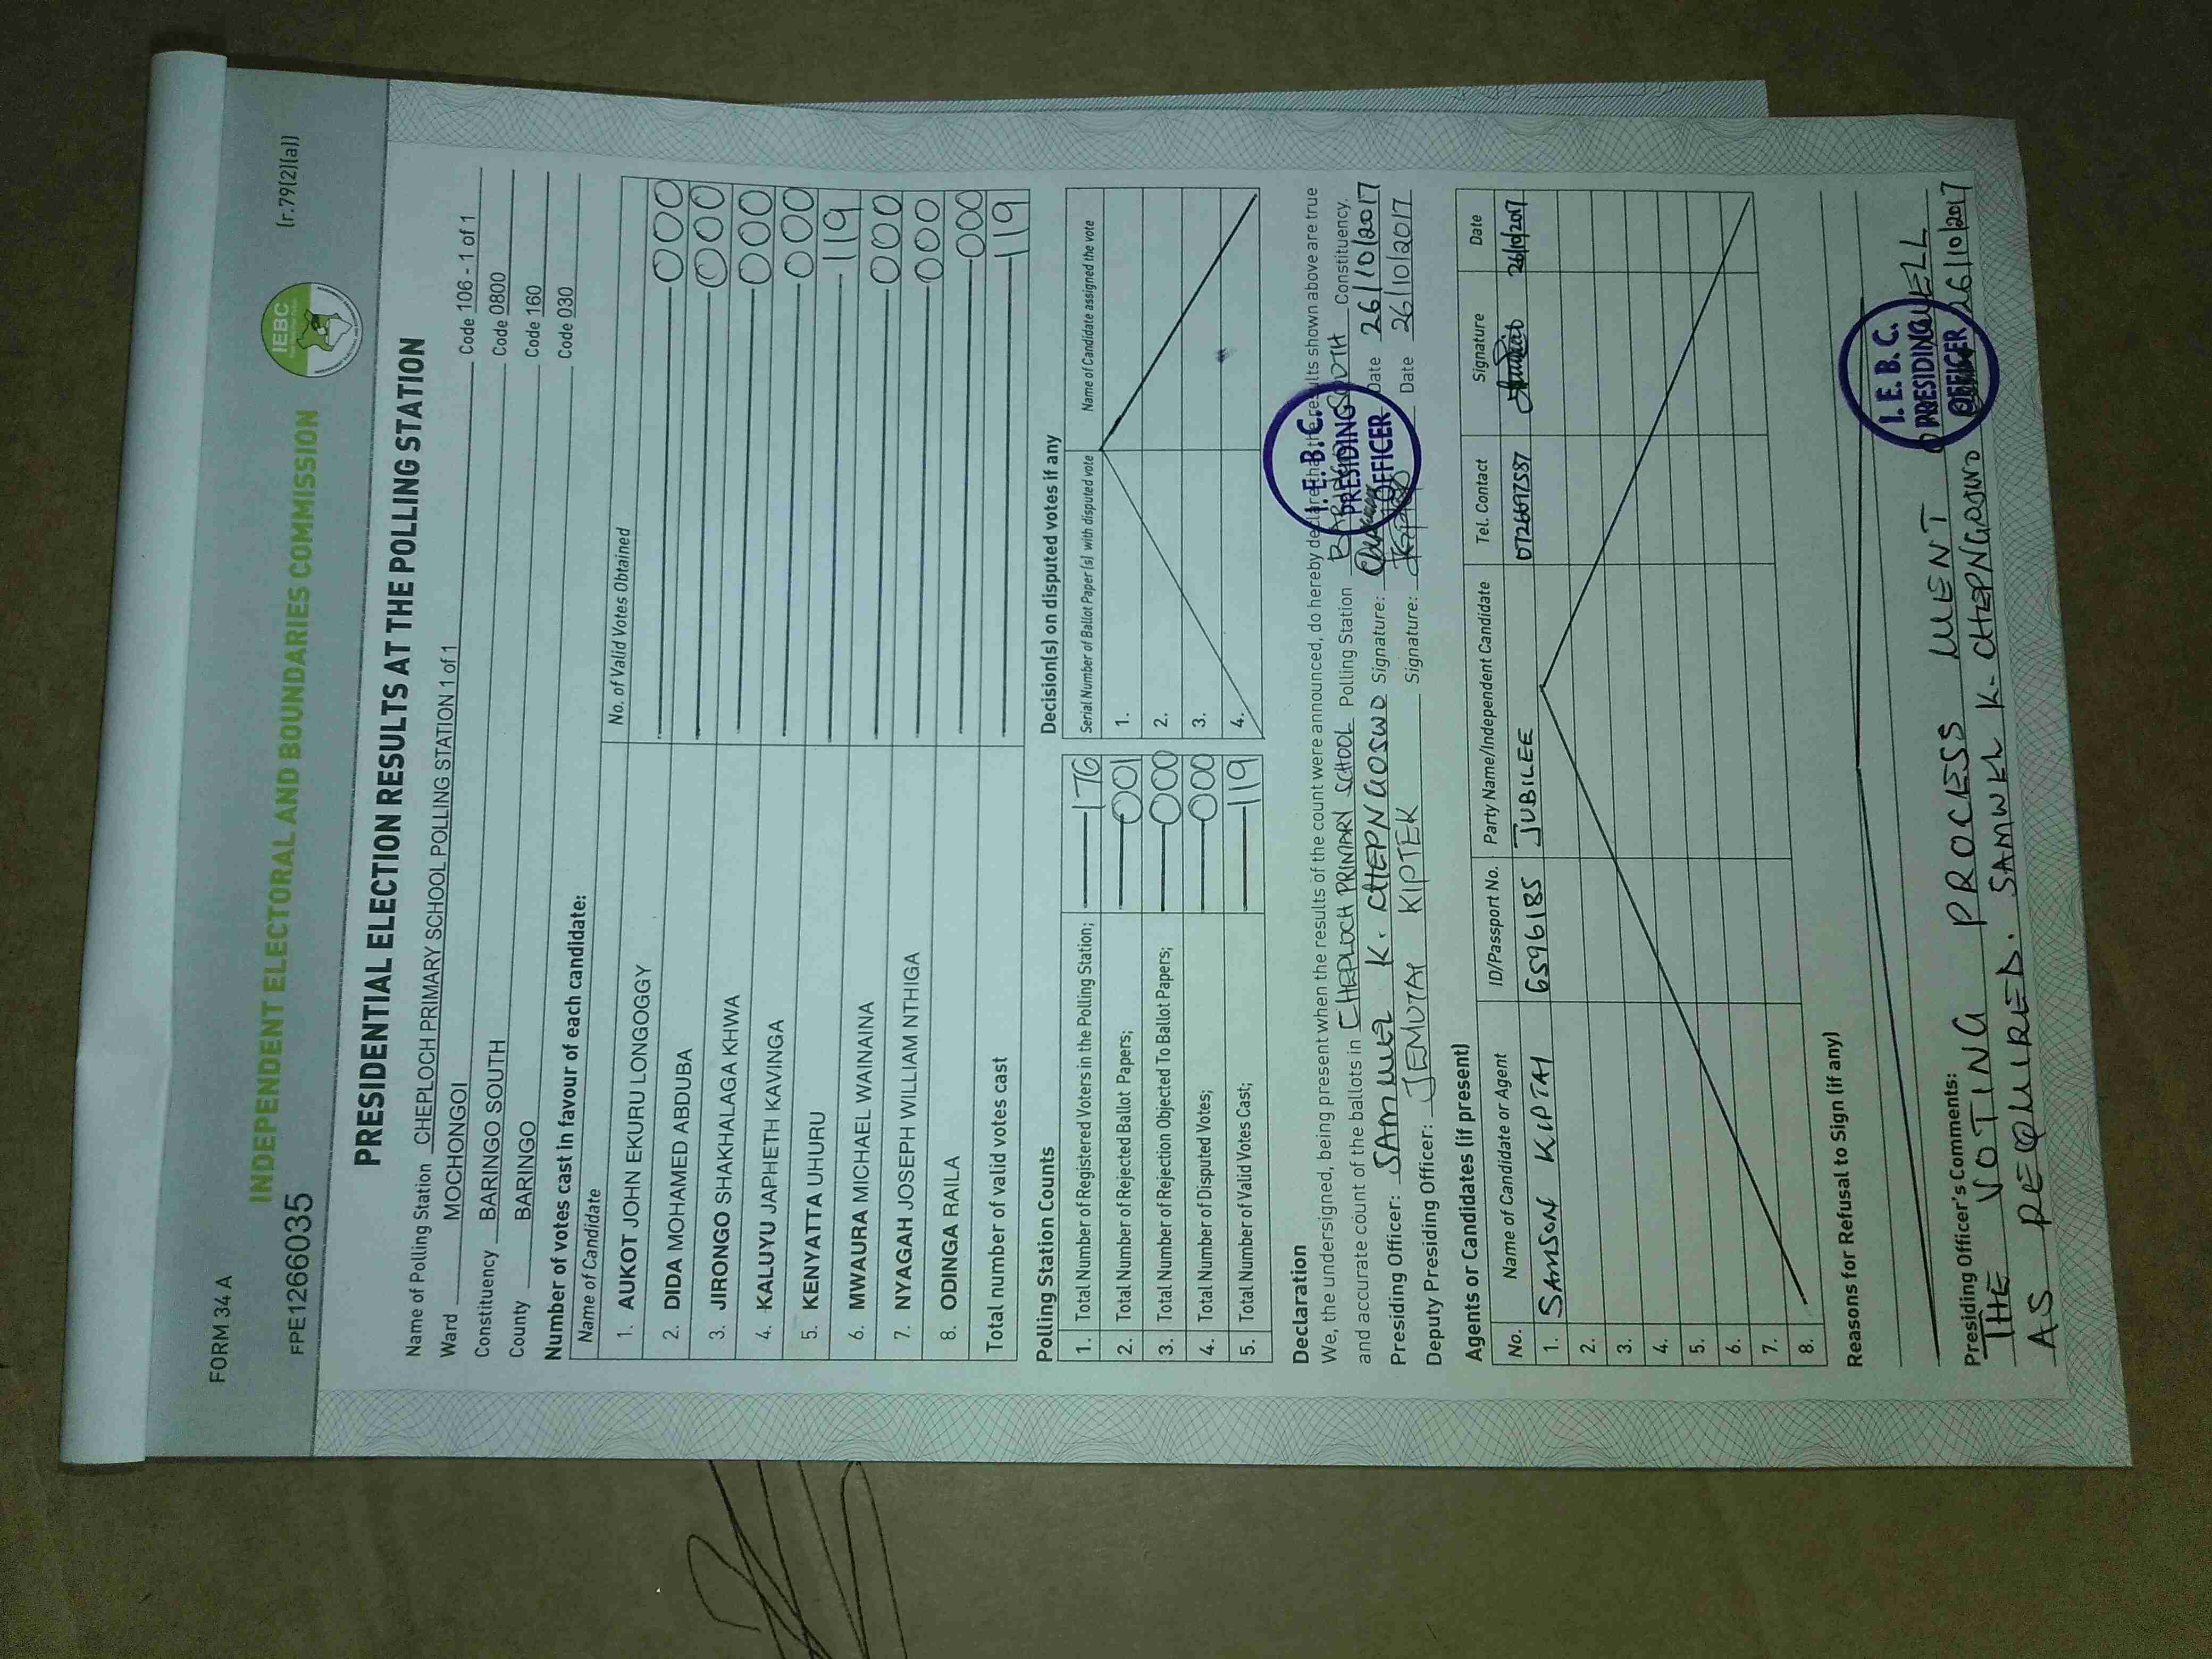 FORM 34 A
(r.79(2)(a))
INDEPENDENT ELECTORAL AND BOUNDARIES COMMISSION
IEBC
FPE1266035
PRESIDENTIAL ELECTION RESULTS AT THE POLLING STATION
Name of Polling Station CHEPLOCH PRIMARY SCHOOL POLLING STATION 1 of 1 Code 106 - 1 of 1
Ward MOCHONGOI Code 0800
Constituency BARINGO SOUTH Code 160
County BARINGO Code 030
Number of votes cast in favour of each candidate:
Name of Candidate No. of Valid Votes Obtained
1. AUKOT JOHN EKURU LONGOGGY 000
2. DIDA MOHAMED ABDUBA 000
3. JIRONGO SHAKHALAGA KHWA 000
4. KALUYU JAPHETH KAVINGA 000
5. KENYATTA UHURU 119
6. MWAURA MICHAEL WAINAINA 000
7. NYAGAH JOSEPH WILLIAM NTHIGA 000
8. ODINGA RAILA 000
Total number of valid votes cast 119
Polling Station Counts
1. Total Number of Registered Voters in the Polling Station; 176
2. Total Number of Rejected Ballot Papers; 001
3. Total Number of Rejection Objected To Ballot Papers; 000
4. Total Number of Disputed Votes; 000
5. Total Number of Valid Votes Cast; 119
Decision(s) on disputed votes if any
Serial Number of Ballot Paper (s) with disputed vote Name of Candidate assigned the vote
1.
2.
3.
4.
Declaration
We, the undersigned, being present when the results of the count were announced, do hereby declare that the results shown above are true
and accurate count of the ballots in CHEPLOCH PRIMARY SCHOOL Polling Station BARINGO SOUTH Constituency.
Presiding Officer: SAMUEL K. CHEPNGOSWO Signature: Date 26/10/2017
Deputy Presiding Officer: JEMUTAI KIPTEK Signature: Date 26/10/2017
I.E.B.C.
PRESIDING
OFFICER
Agents or Candidates (if present)
No. Name of Candidate or Agent ID/Passport No. Party Name/Independent Candidate Tel. Contact Signature Date
1. SAMSON KIPTAI 6596185 JUBILEE 0726697587 26/10/2017
2.
3.
4.
5.
6.
7.
8.
Reasons for Refusal to Sign (if any)
Presiding Officer's Comments:
THE VOTING PROCESS WENT WELL
AS REQUIRED. SAMUEL K. CHEPNGOSWO 26/10/2017
I.E.B.C.
PRESIDING
OFFICER